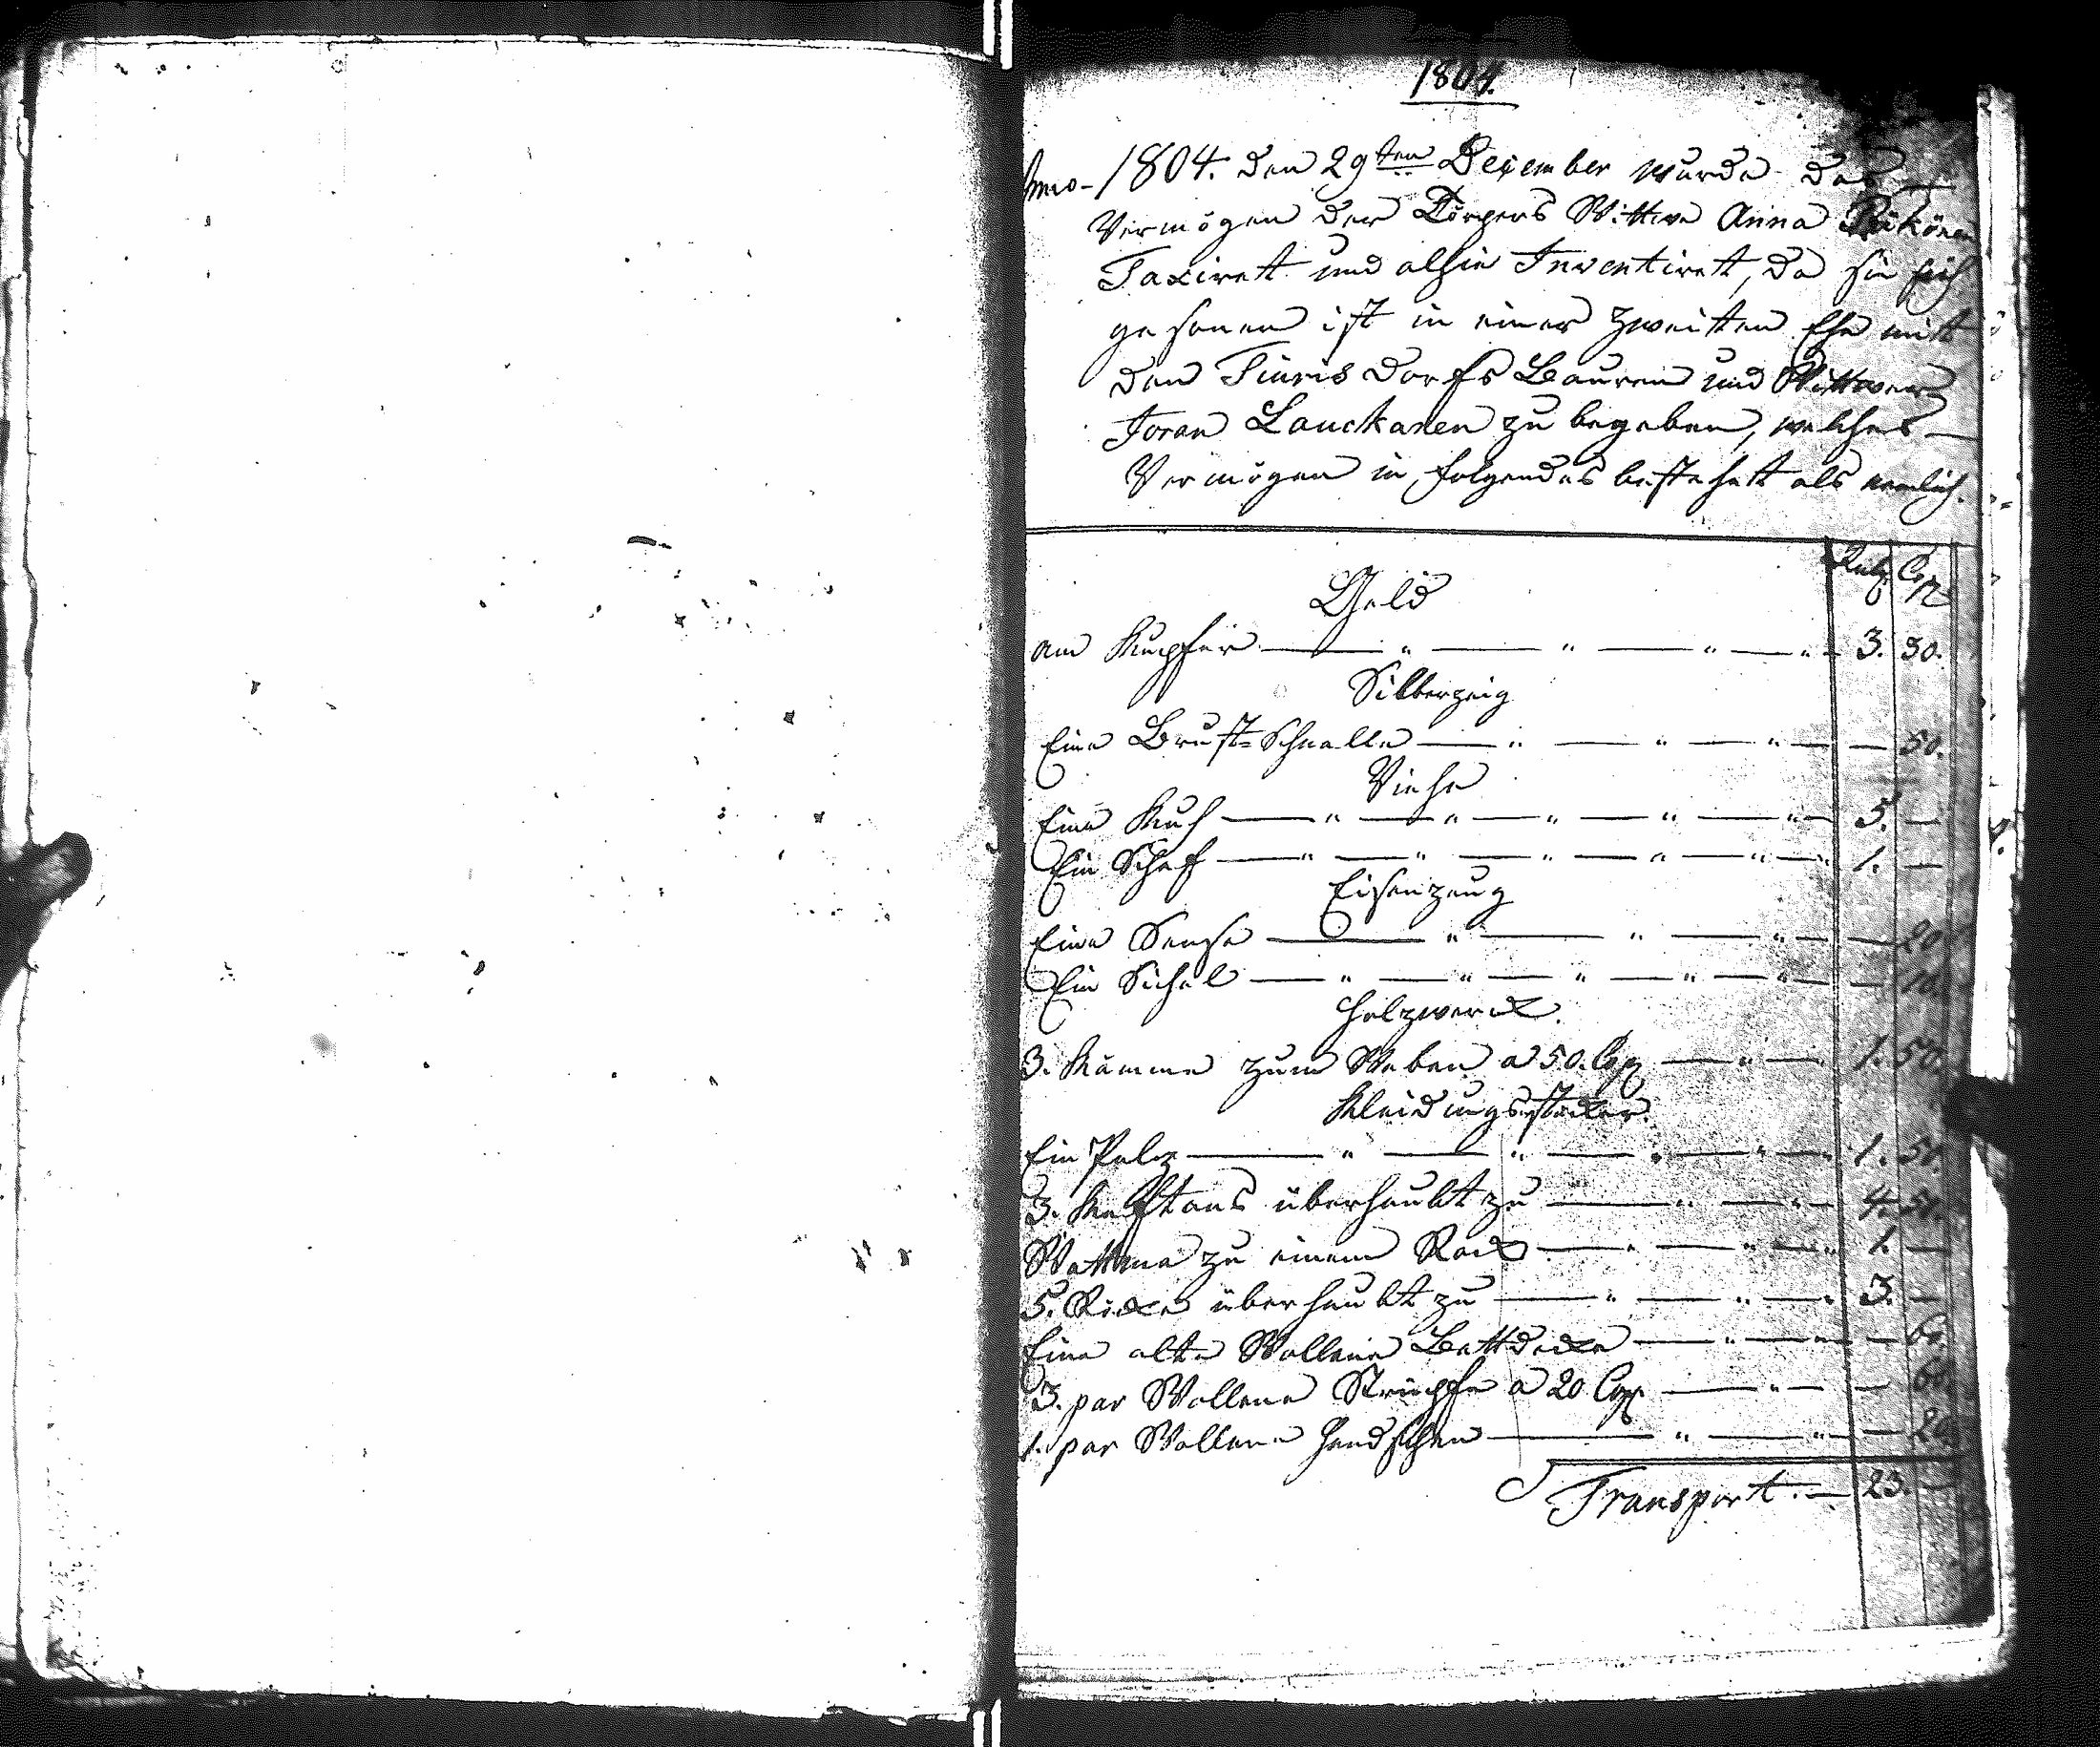 1804.
Anno 1804. den 29ten December wurde das
Vermögen der Törpers Wittwe Anna
Taxirett und alhie Inventirett, da sie sich
gesonnen ist in einer zweitten Ehe mit
den Tiuris Dorfs Bauren und Wittwer
Joran Lauckanen zu begeben, welches
Vermögen in folgendes bestehett als nemlich.
Rubl Cop
Geld
an Kupfer — " — " — " — " — 3. 30.
Silberzeig
Eine Brust=Schnalle — " — " — " — — 50.
Viehe
Eine Kuh — " — " — " — " — " — 5. —
Ein Schaf — " — " — " — " — " — " 1. —
Eisenzeug
Eine Sense — " — " — " — — 20
Ein Sichel — " — " — " — " — " — — 10.
Holzwerck.
3. Kämme zum Weben a 50. Cop — " — " 1. 50.
Kleidungsstücker
Ein Pelz — " — " — " — " — " 1. 50.
3. Kaftans überhaubt zu — " — " — " 4. 50.
Wattma zu einem Rock — " — " — " 1. —
5. Röcke überhaubt zu — " — " — " 3. —
Eine alte Wollene Bettdecke — " — " — — 60.
3. par Wollene Strüpfe a 20 Cop — " — — 60
1. par Wollene Handschen — " — " — — 20
Transport. — 23. —